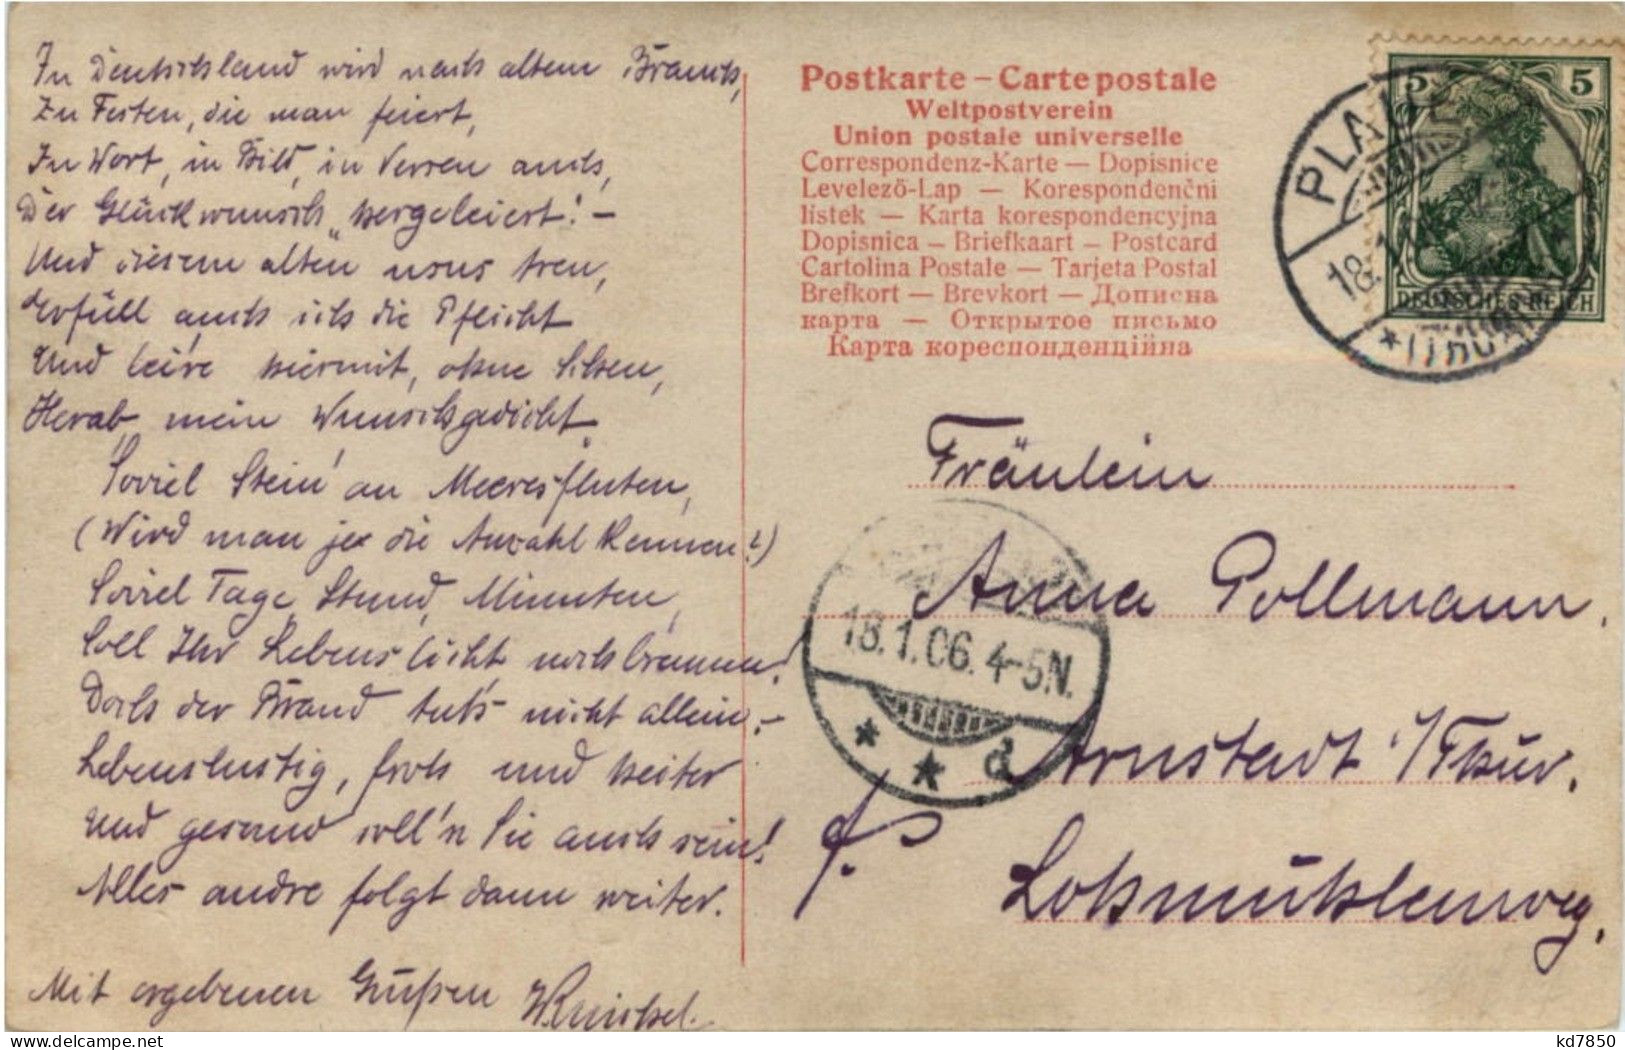 In Deutschland wird nach altem Brauch,
Zu Festen, die man feiert,
In Wort, in Bild, in Versen auch,
Der Glückwunsch „hergeleiert! –
Und diesem alten usus treu,
Erfüll auch ich die Pflicht
Und leire hiermit, ohne Scheu,
Herab mein Wunschgedicht.
Soviel Stein' an Meeresfluten,
(Wird man je die Anzahl kennen?)
Soviel Tage, Stund, Minuten,
Soll Ihr Lebenslicht noch brennen!
Doch der Brand tut's nicht allein; –
Lebenslustig, froh und heiter
Und gesund soll'n Sie auch sein!
Alles andre folgt dann weiter.
Mit ergebenen Grüßen
Postkarte – Carte postale
Weltpostverein
Union postale universelle
Correspondenz-Karte — Dopisnice
Levelező-Lap — Korespondenční
listek — Karta korespondencyjna
Dopisnica — Briefkaart — Postcard
Cartolina Postale — Tarjeta Postal
Brefkort — Brevkort — Дописна
карта — Открытое письмо
Карта кореспонденційна
5 5
DEUTSCHES REICH
PLAUE
18.
* (THÜR.)
Fräulein
Anna Pollmann.
18.1.06. 4-5N.
* * d
Arnstadt i/Thür.
Lohmühlenweg.
kd7850